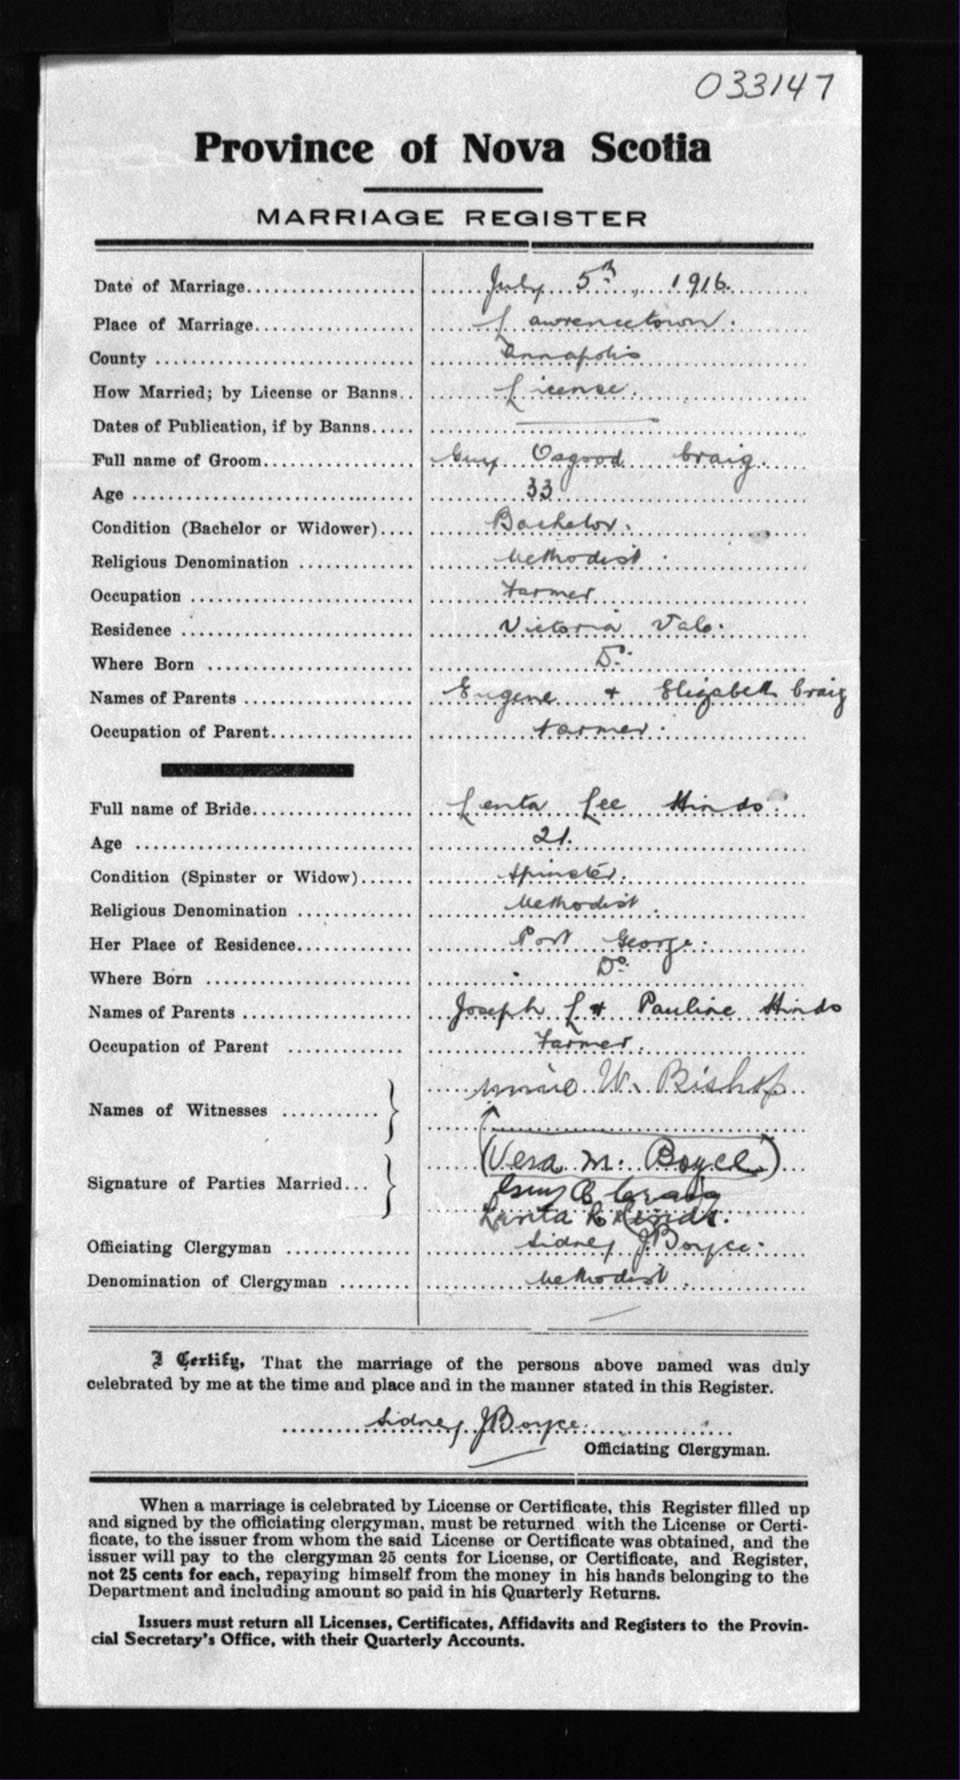 033147
Province of Nova Scotia
MARRIAGE REGISTER
Date of Marriage.................... July 5th, 1916.
Place of Marriage................... Lawrencetown.
County .............................. Annapolis
How Married; by License or Banns.. License.
Dates of Publication, if by Banns..... ———
Full name of Groom.................. Guy Osgood Craig.
Age .................................. 33
Condition (Bachelor or Widower).... Bachelor.
Religious Denomination .............. Methodist.
Occupation .......................... Farmer
Residence ............................ Victoria Vale.
Where Born .......................... Do.
Names of Parents .................... Eugene + Elizabeth Craig
Occupation of Parent................. Farmer.
Full name of Bride................... Lenta Lee Hinds.
Age .................................. 21.
Condition (Spinster or Widow)...... Spinster.
Religious Denomination .............. Methodist.
Her Place of Residence.............. Port George.
Where Born .......................... Do.
Names of Parents .................... Joseph L + Pauline Hinds
Occupation of Parent ................ Farmer.
Names of Witnesses ........... } W. Bishop
(Vera M. Boyce.)
Signature of Parties Married... } Guy O Craig
Lenta L Hinds.
Officiating Clergyman ............... Sidney J. Boyce.
Denomination of Clergyman ........ Methodist.
I Certify, That the marriage of the persons above named was duly
celebrated by me at the time and place and in the manner stated in this Register.
Sidney J Boyce.
Officiating Clergyman.
When a marriage is celebrated by License or Certificate, this Register filled up
and signed by the officiating clergyman, must be returned with the License or Certi-
ficate, to the issuer from whom the said License or Certificate was obtained, and the
issuer will pay to the clergyman 25 cents for License, or Certificate, and Register,
not 25 cents for each, repaying himself from the money in his hands belonging to the
Department and including amount so paid in his Quarterly Returns.
Issuers must return all Licenses, Certificates, Affidavits and Registers to the Provin-
cial Secretary's Office, with their Quarterly Accounts.